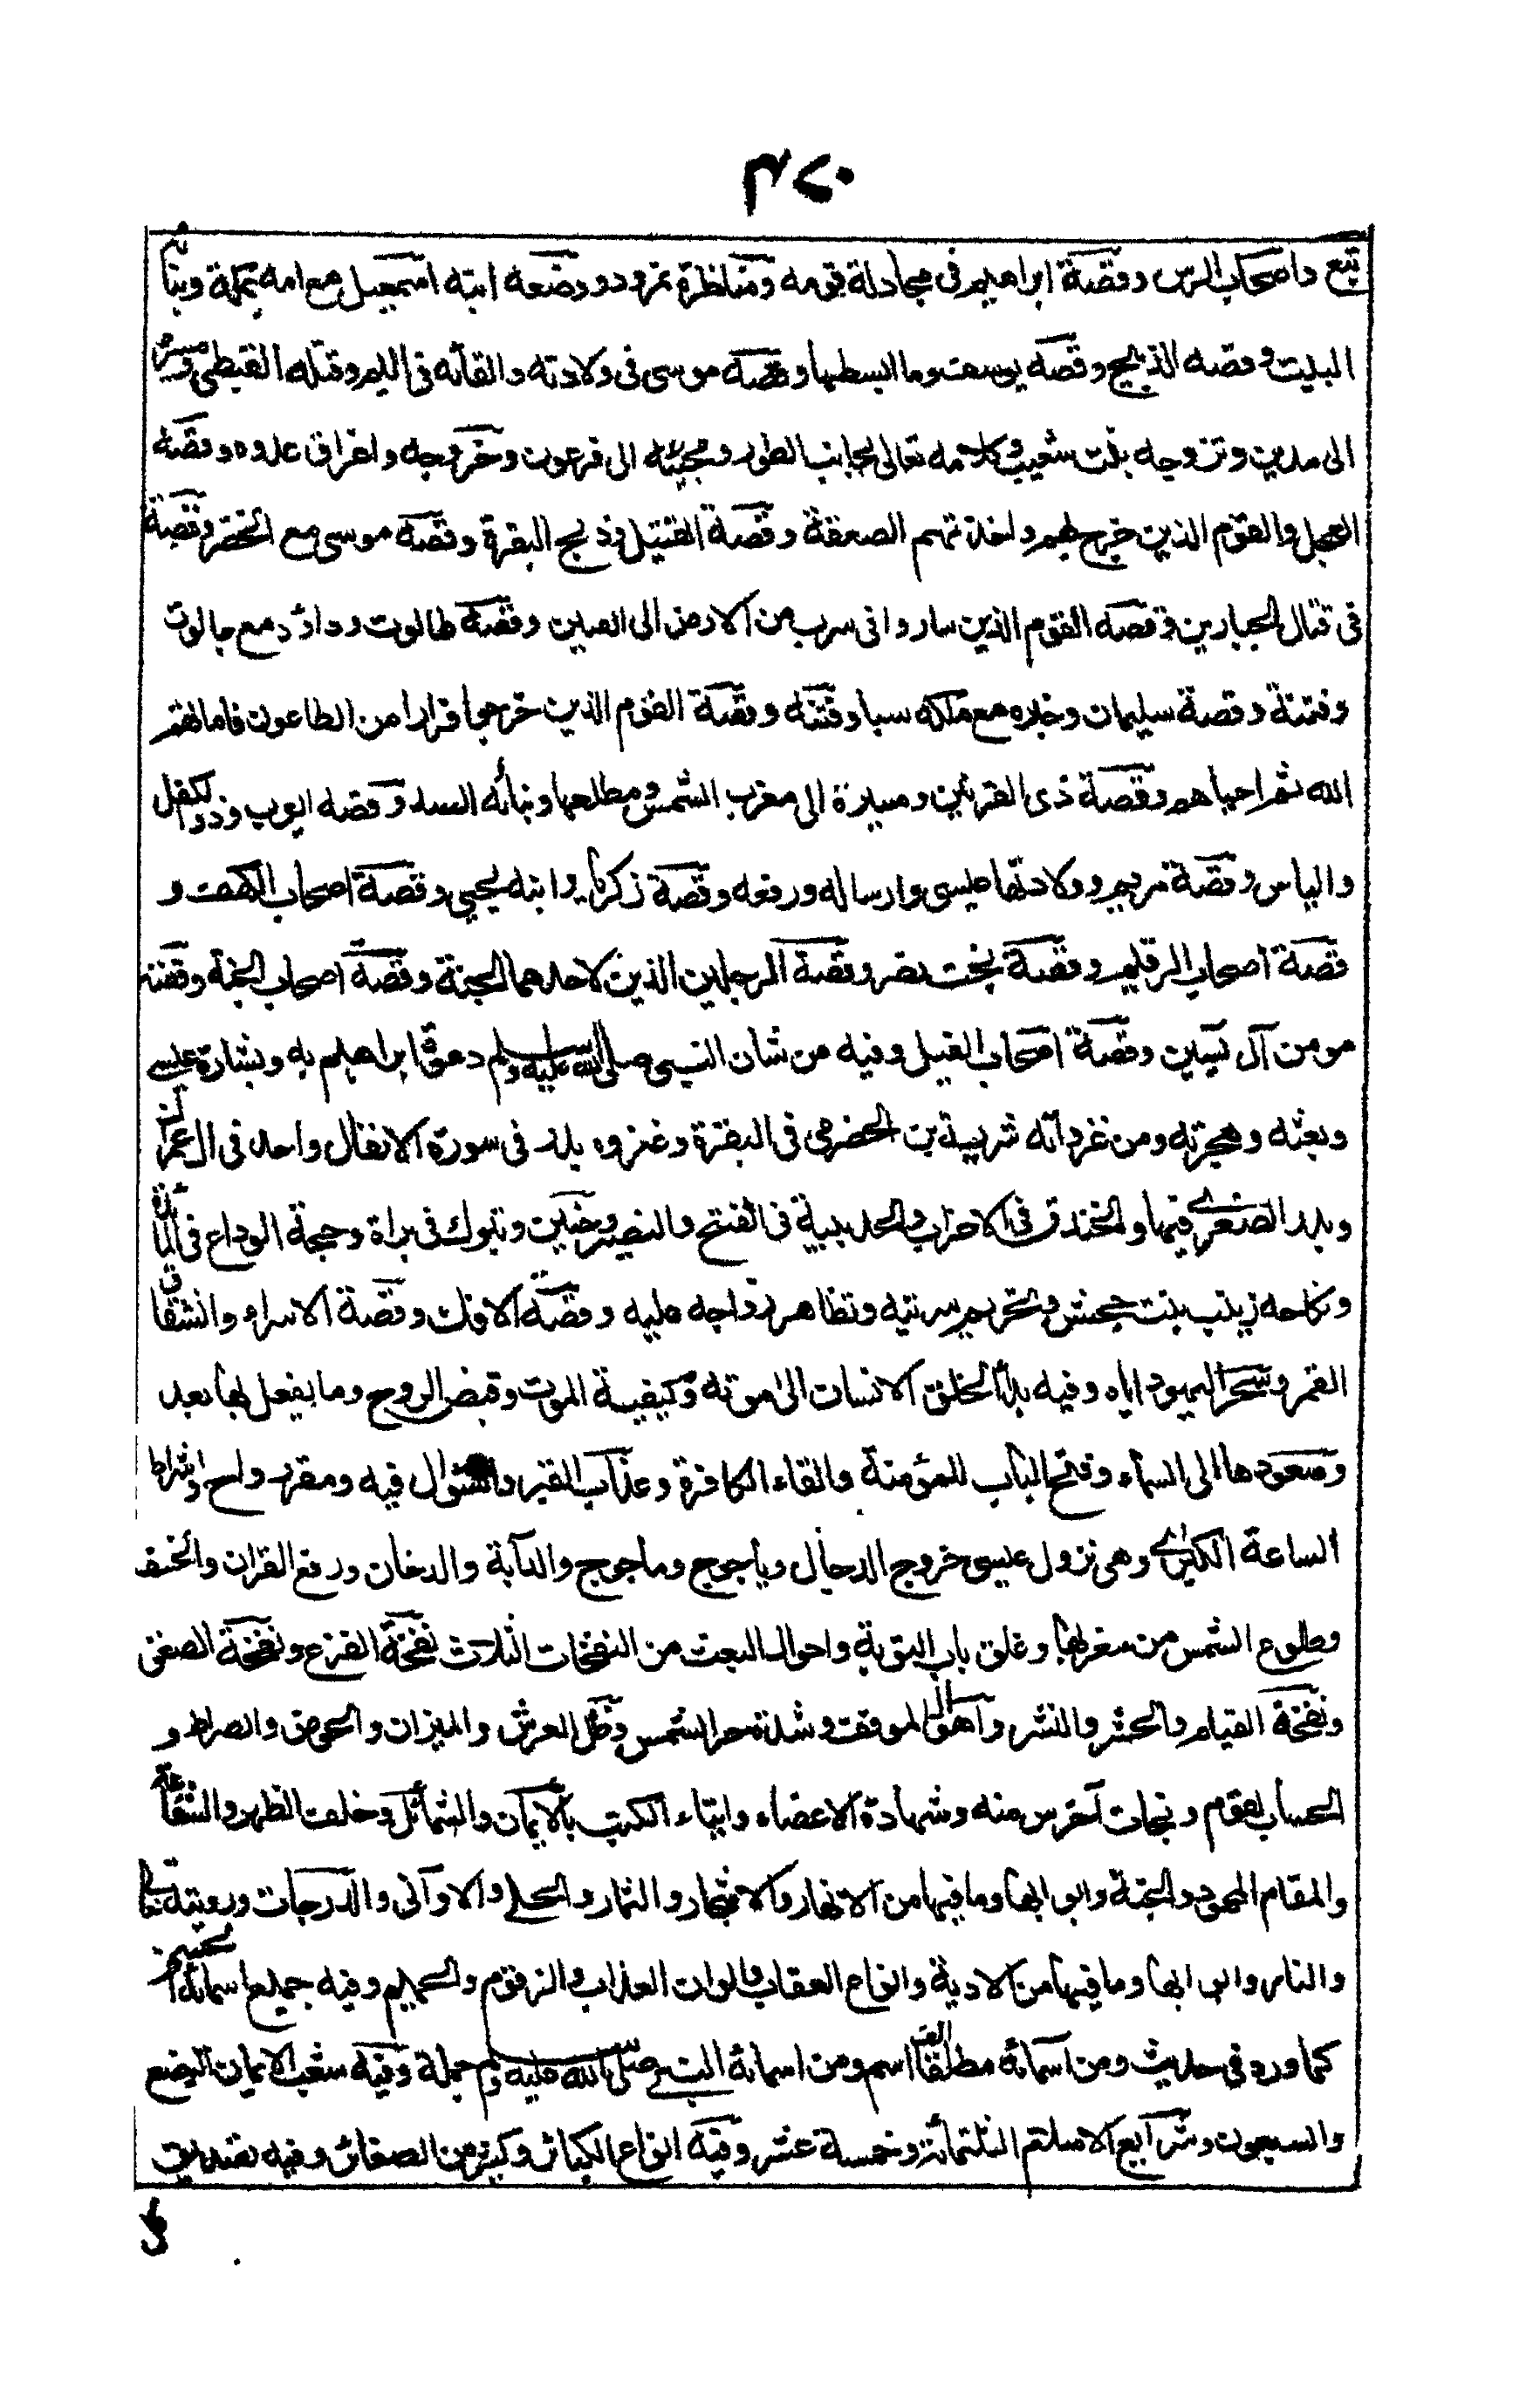 ٣٧٠
تبع واصحاب الرس وقصة ابراهيم فى مجادلة قومه ومناظرة نمرود ووضعه ابنه اسمعيل مع امه بمكة وبناء
البيت وقصه الذبيح وقصه يوسف وما ابسطها وقصه موسى فى ولادته والقائه فى اليم وقتله القبطى ومسيره
الى مدين وتزوجه بنت شعيب وكلامه تعالى بجانب الطور ومجيئه الى فرعون وخروجه واغراق عدوه وقصة
العجل والقوم الذين خرج بهم واخذتهم الصعقة وقصة القتيل وذبح البقرة وقصه موسى مع الخضر وقصة
فى قتال الجبارين وقصه القوم الذين ساروا فى سرب من الارض الى الصين وقصه طالوت وداؤد مع جالوت
وفتنة وقصة سليمان وخبره مع ملكه سبا وفتنه وقصة القوم الذين خرجوا فرارا من الطاعون فاماتهم
الله ثم احياهم وقصة ذى القرنين ومسيره الى مغرب الشمس ومطلعها وبنائه السد وقصه ايوب وذوالكفل
والياس وقصة مريم وولادتها عيسى وارساله ورفعه وقصة زكريا وابنه يحيى وقصة اصحاب الكهف و
قصة اصحاب الرقيم وقصة بخت نصر وقصة الرجلين الذين لاحدهما الجنة وقصة اصحاب الجنة وقصة
مومن آل يسين وقصة اصحاب الفيل وفيه من شان النبى صلى الله عليه وسلم دعوة ابراهيم به وبشارة عيسى
وبعثه وهجرته ومن غزواته سرية ابن الحضرمى فى البقرة وغزوه بدر فى سورة الانفال واحد فى ال عمران
وبدر الصغرى فيها والخندق فى الاحزاب والحديبية فى الفتح والنضير وحنين وتبوك فى براة وحجة الوداع فى المائدة
ونكاحه زينب بنت جحش وتحريم سريته وتظاهر ازواجه عليه وقصة الافك وقصة الاسراء وانشقاق
القمر وسحر اليهود اياه وفيه بدأ خلق الانسان الى موته وكيفية الموت وقبض الروح وما يفعل بها بعد
وصعودها الى السماء وفتح الباب للمؤمنة والقاء الكافرة وعذاب القبر والسؤال فيه ومقرر واح واشراط
الساعة الكبرى وهى نزول عيسى خروج الدجال وياجوج وماجوج والدآبة والدخان ورفع القران والخسف
وطلوع الشمس من مغربها وغلق باب التوبة واحوال البعث من النفخات الثلاث نفخة الفزع ونفخة الصعق
ونفخة القيام والحشر والنشر واهوال الموقف وشدة حر الشمس وظل العرش والميزان والحوض والصراط و
الحساب لقوم ونجات آخرين منه وشهادة الاعضاء وايتاء الكتب بالايمان والشمائل وخلف الظهر والشفاعة
والمقام المحمود والجنة وابوابها وما فيها من الانهار والاشجار والثمار والحلى والاوانى والدرجات ورويته تعالى
والنار وابوابها وما فيها من الادوية وانواع العقاب والوان العذاب والزقوم والحميم وفيه جميع اسمائه الحسنى
كما ورد فى حديث ومن اسمائه مطلقا الف اسم ومن اسمائه النبى صلى الله عليه وسلم جملة وفيه شعب الايمان البضع
والسبعون وشرايع الاسلام الثلثمائة وخمسة عشر وفيه انواع الكبائر وكثير من الصغائر وفيه تصديق